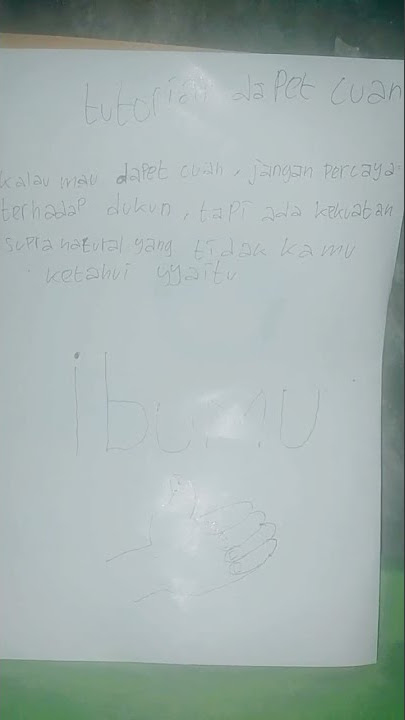 tutorial dapet cuan
kalau mau dapet cuan, jangan percaya
terhadap dukun, tapi ada kekuatan
supranatural yang tidak kamu
ketahui yyaitu
ibumu